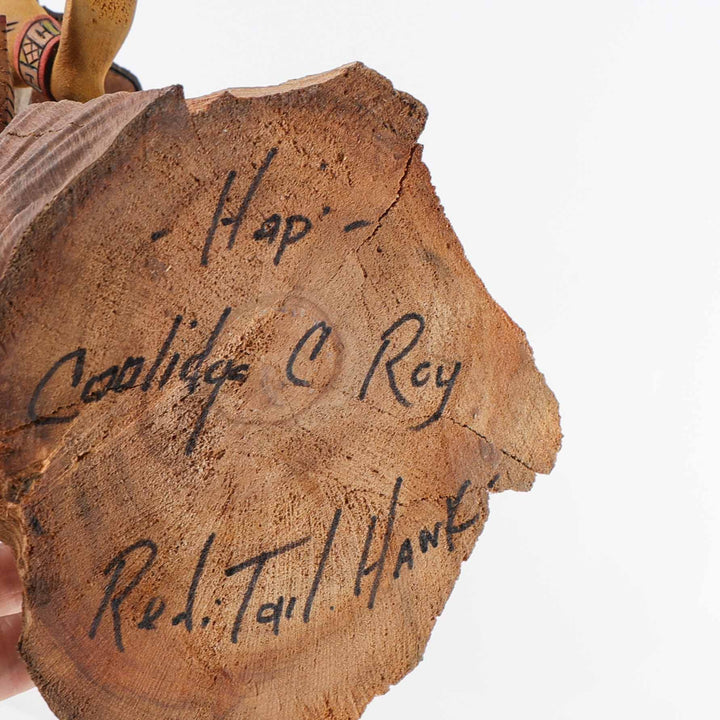 - Hopi -
Coolidge C Roy
Red. Tail. Hawk.